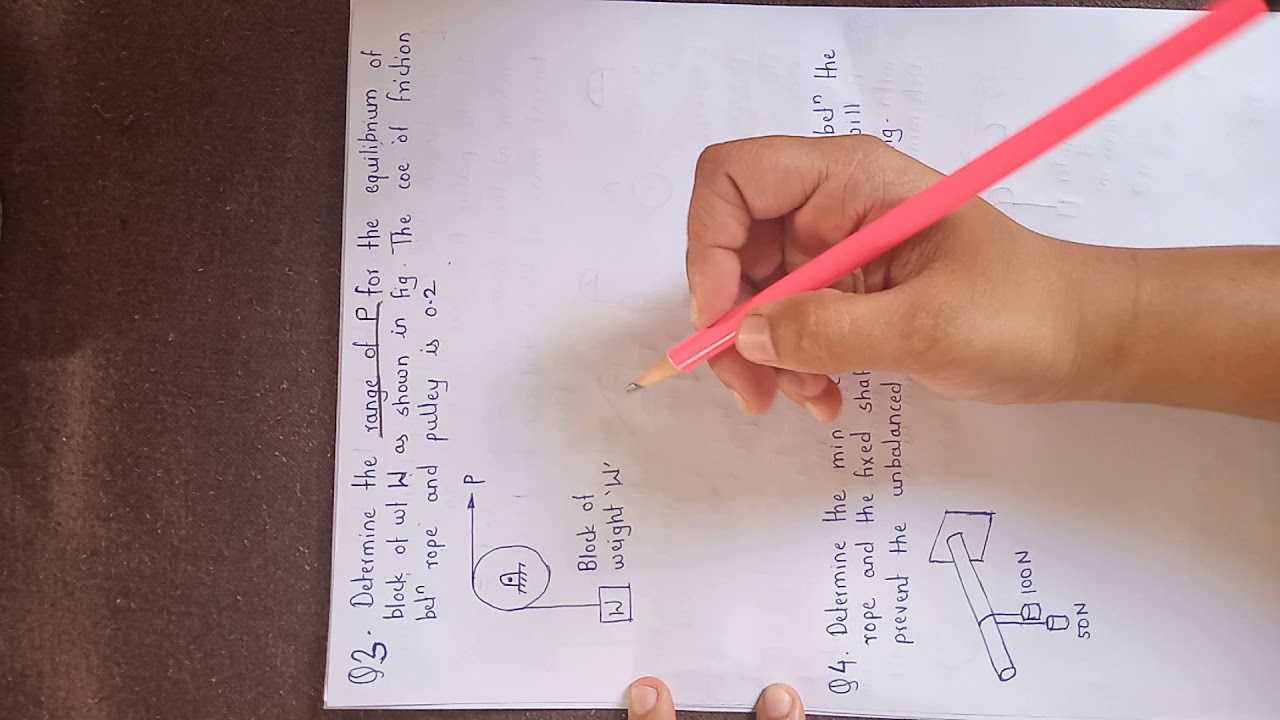 Q3. Determine the range of P for the equilibrium of
block of wt W as shown in fig. The coe of friction
betⁿ rope and pulley is 0.2
P
W
Block of
weight 'W'
Q4. Determine the min betⁿ the
rope and the fixed will
prevent the unbalanced
100N
50N